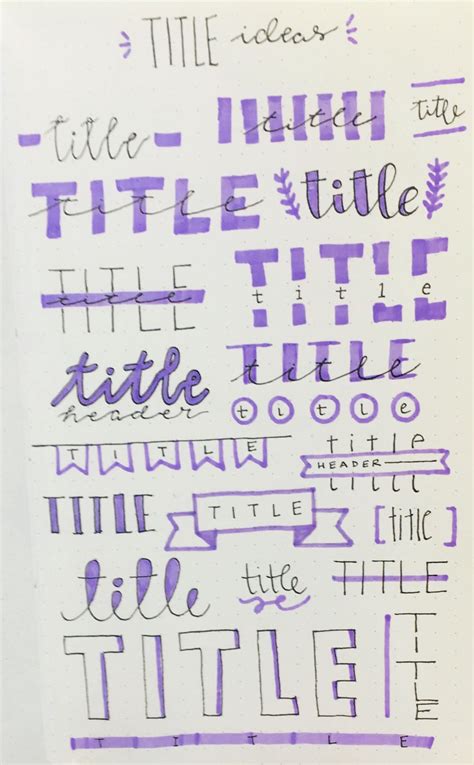 TITLE ideas
title
title
title
TITLE
title
title
TITLE
title
title
TITLE
title
title
header
title
TITLE
title
HEADER
TITLE
TITLE
[title]
title
title
TITLE
TITLE
TITLE
TITLE